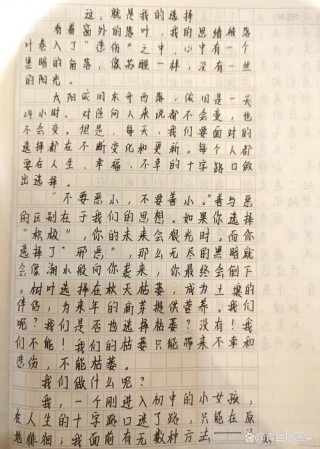 这，就是我的选择
看着窗外的落叶，我的思绪被落
叶卷入了“悲伤”之中，心中有一个
黑暗的角落，像苏醒一样，没有一丝
的阳光。
太阳依旧东升西落，依旧是一天
24小时。对任何人来说都不会变，也
不会变，但是，每天，我们要面对的
选择都在不断变化和更新。每个人都
要在人生、幸福、不幸的十字路口做
出选择。
“不要恶小，不要善小。”善与恶
的区别在于我们的思想。如果你选择
“积极”，你的未来会很光明。而你
选择了“邪恶”，那么无尽的黑暗就
会像潮水般向你袭来，你最终会倒下
。树叶选择在秋天枯萎，成为土壤的
伴侣，为来年的新芽提供营养。我们
呢？我们是否也选择枯萎？没有！我
们不能！我们的枯萎只能带来不幸和
悲伤，不能枯萎。
我们做什么呢？
我，一个刚进入初中的小女孩，
在人生的十字路口迷了路，只能在原
地徘徊；我面前有无数种方法——从